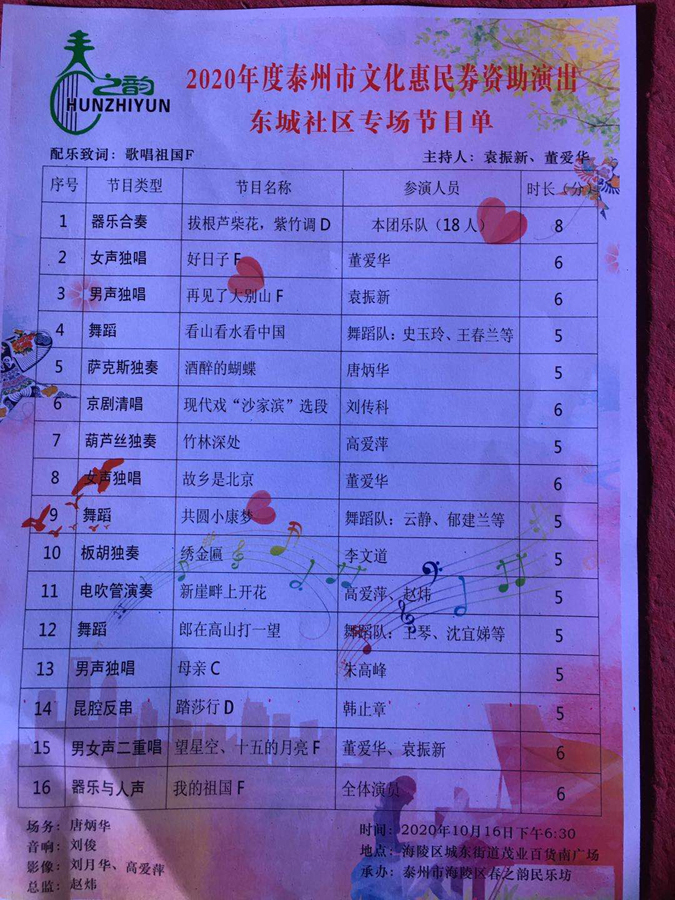 春之韵
CHUNZHIYUN
2020年度泰州市文化惠民券资助演出
东城社区专场节目单
配乐致词：歌唱祖国F 主持人：袁振新、董爱华
序号 节目类型 节目名称 参演人员 时长（分）
1 器乐合奏 拔根芦柴花，紫竹调 D 本团乐队（18 人） 8
2 女声独唱 好日子 F 董爱华 6
3 男声独唱 再见了大别山 F 袁振新 6
4 舞蹈 看山看水看中国 舞蹈队：史玉玲、王春兰等 5
5 萨克斯独奏 酒醉的蝴蝶 唐炳华 5
6 京剧清唱 现代戏“沙家滨”选段 刘传科 6
7 葫芦丝独奏 竹林深处 高爱萍 5
8 女声独唱 故乡是北京 董爱华 6
9 舞蹈 共圆小康梦 舞蹈队：云静、郁建兰等 5
10 板胡独奏 绣金匾 李文道 5
11 电吹管演奏 新崖畔上开花 高爱萍、赵炜 5
12 舞蹈 郎在高山打一望 舞蹈队：王琴、沈宜娣等 5
13 男声独唱 母亲 C 朱高峰 5
14 昆腔反串 踏莎行 D 韩止章 5
15 男女声二重唱 望星空、十五的月亮 F 董爱华、袁振新 6
16 器乐与人声 我的祖国 F 全体演员 6
场务：唐炳华
音响：刘俊
影像：刘月华、高爱萍
总监：赵炜
时间：2020年10月16日下午6:30
地点：海陵区城东街道茂业百货南广场
承办：泰州市海陵区春之韵民乐坊